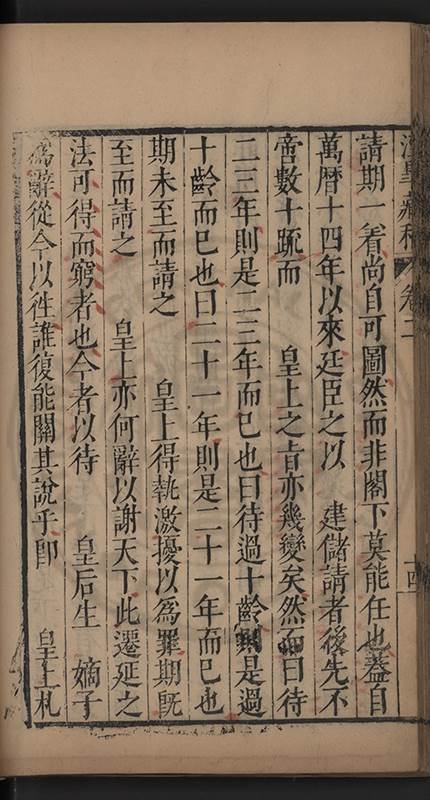 涇皋藏稿 卷二 十四
請期一着尚自可圖然而非閣下莫能任也蓋自
萬曆十四年以來廷臣之以 建儲請者後先不
啻數十疏而 皇上之旨亦幾變矣然而曰待
二三年則是二三年而已也曰待過十齡則是過
十齡而已也曰二十一年則是二十一年而已也
期未至而請之 皇上得執激擾以爲罪期旣
至而請之 皇上亦何辭以謝天下此遷延之
法可得而窮者也今者以待 皇后生 嫡子
爲辭從今以徃誰復能關其說乎卽 皇上札